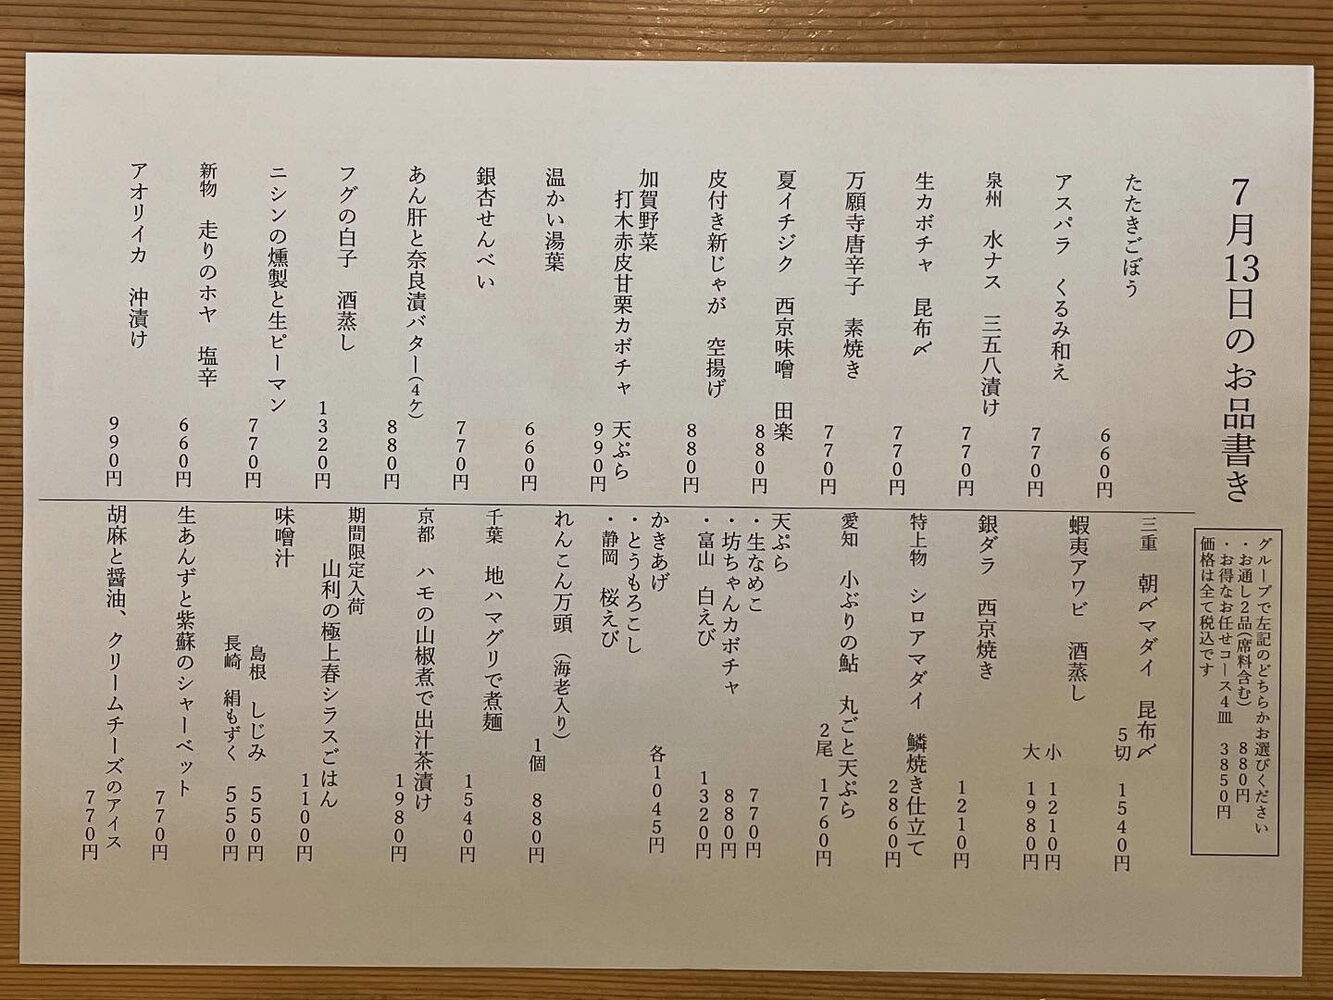 7月13日のお品書き
グループで左記のどちらかお選びください
・お通し2品(席料含む) 880円
・お得なお任せコース4皿 3850円
価格は全て税込です
たたきごぼう 660円
アスパラ くるみ和え 770円
泉州 水ナス 三五八漬け 770円
生カボチャ 昆布〆 770円
万願寺唐辛子 素焼き 770円
夏イチジク 西京味噌 田楽 880円
皮付き新じゃが 空揚げ 880円
加賀野菜
打木赤皮甘栗カボチャ 天ぷら 990円
温かい湯葉 660円
銀杏せんべい 770円
あん肝と奈良漬バター(4ケ) 880円
フグの白子 酒蒸し 1320円
ニシンの燻製と生ピーマン 770円
新物 走りのホヤ 塩辛 660円
アオリイカ 沖漬け 990円
三重 朝〆マダイ 昆布〆 5切 1540円
蝦夷アワビ 酒蒸し
小 1210円
大 1980円
銀ダラ 西京焼き 1210円
特上物 シロアマダイ 鱗焼き仕立て 2860円
愛知 小ぶりの鮎 丸ごと天ぷら 2尾 1760円
天ぷら
・生なめこ 770円
・坊ちゃんカボチャ 880円
・富山 白えび 1320円
かきあげ
・とうもろこし
・静岡 桜えび
各1045円
れんこん万頭 (海老入り) 1個 880円
千葉 地ハマグリで煮麺 1540円
京都 ハモの山椒煮で出汁茶漬け 1980円
期間限定入荷
山利の極上春シラスごはん 1100円
味噌汁
島根 しじみ 550円
長崎 絹もずく 550円
生あんずと紫蘇のシャーベット 770円
胡麻と醤油、クリームチーズのアイス 770円